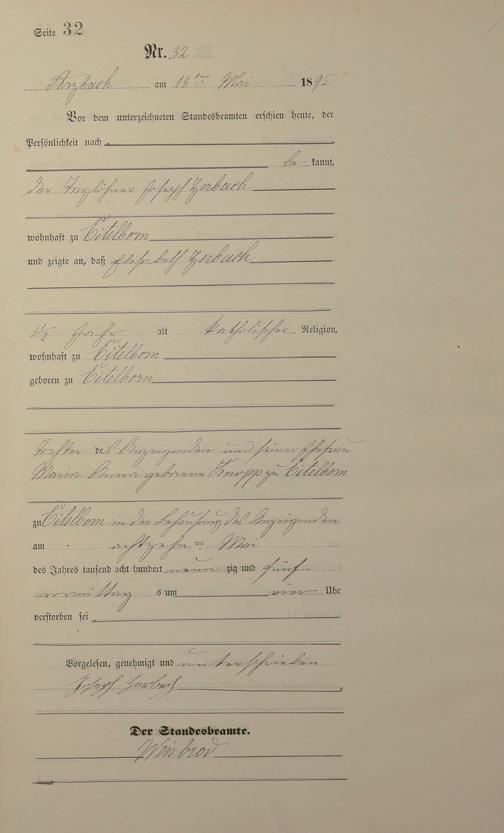 Seite 32
Nr. 32
Arzbach am 18ten Mai 1895
Vor dem unterzeichneten Standesbeamten erschien heute, der
Persönlichkeit nach
be kannt,
der Taglöhner Joseph Zerbach
wohnhaft zu Eitelborn
und zeigte an, daß Elisabeth Zerbach
1/2 Jahr alt katholischer Religion,
wohnhaft zu Eitelborn
geboren zu Eitelborn
Tochter des Anzeigenden und seiner Ehefrau
Maria Anna geborene Knopp zu Eitelborn
zu Eitelborn in der Behausung des Anzeigenden
am achtzehnten Mai
des Jahres tausend acht hundert neun zig und fünf
vormittag s um vier Uhr
verstorben sei
Vorgelesen, genehmigt und unterschrieben
Joseph Zerbach
Der Standesbeamte.
Weisbrod